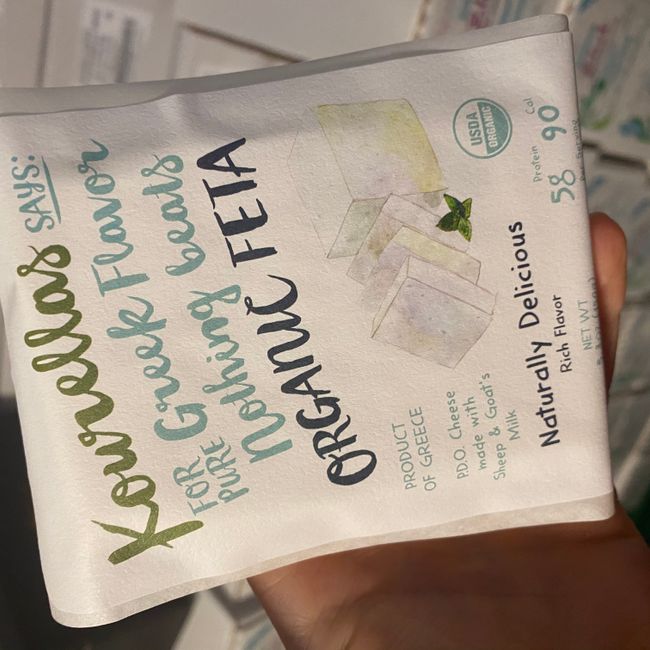 Kourellas SAYS:
FOR PURE Greek Flavor
Nothing beats
ORGANIC FETA
USDA
ORGANIC
PRODUCT
OF GREECE
P.D.O. Cheese
made with
Sheep & Goat's
Milk
Naturally Delicious
Rich Flavor
Protein
5g
Cal
90
NET WT